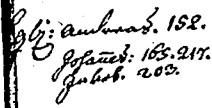 Eglj: Andreas. 152.
Johannes: 165. 217.
Jakob. 203.